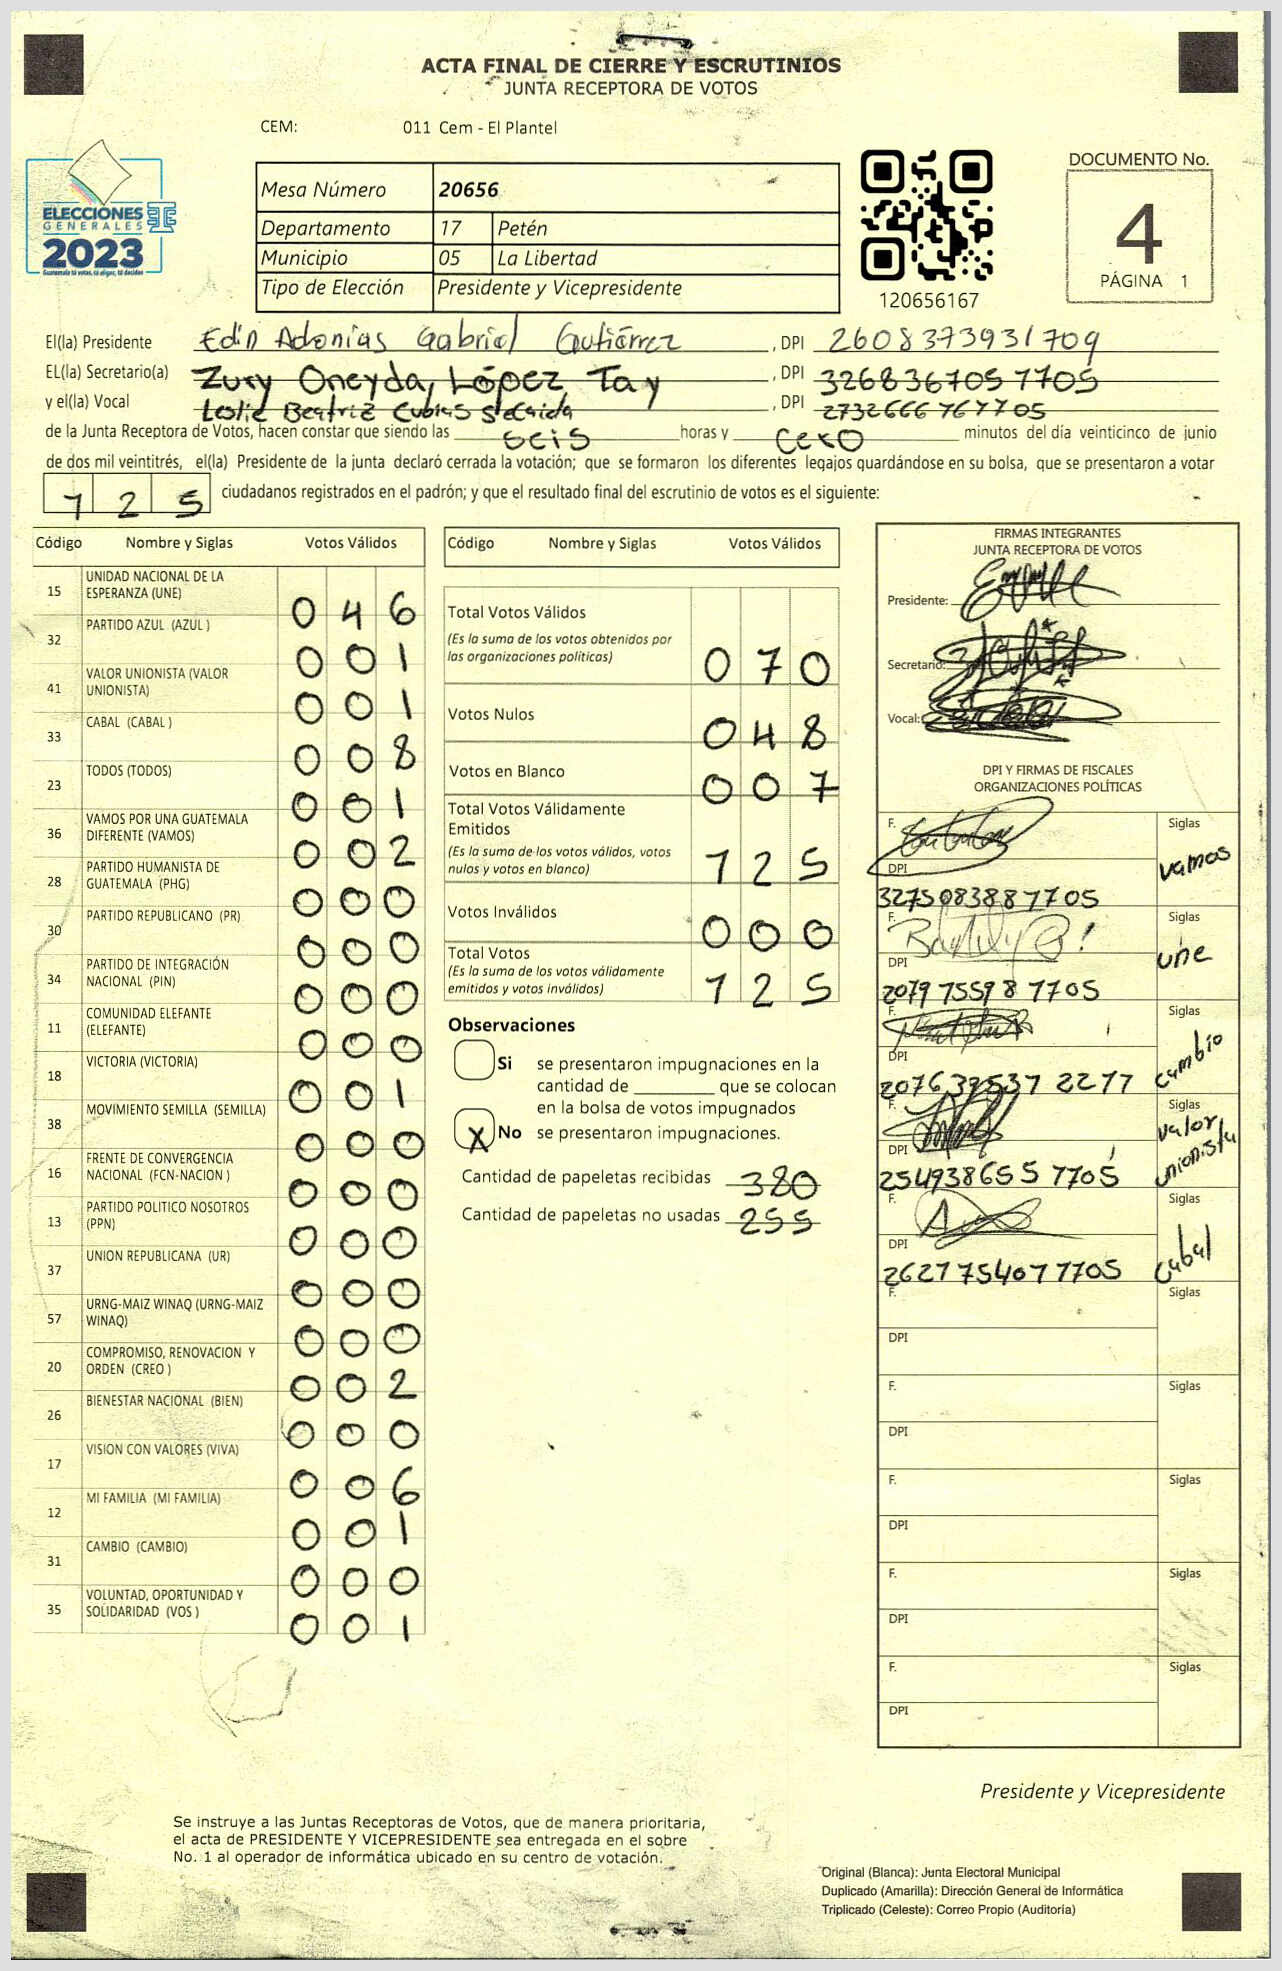 ACTA FINAL DE CIERRE Y ESCRUTINIOS
JUNTA RECEPTORA DE VOTOS
CEM: 011 Cem - El Plantel
ELECCIONES
GENERALES
2023
Guatemala tú votas, tú eliges, tú decides
Mesa Número 20656
Departamento 17 Petén
Municipio 05 La Libertad
Tipo de Elección Presidente y Vicepresidente
120656167
DOCUMENTO No.
4
PÁGINA 1
El(la) Presidente Edin Adonias Gabriel Gutiérrez, DPI 2608373931709
EL(la) Secretario(a) Zury Oneyda López Tay, DPI 3268367057705
y el(la) Vocal Leslie Beatriz Cubias, DPI 2732666767705
de la Junta Receptora de Votos, hacen constar que siendo las seis horas y cero minutos del día veinticinco de junio
de dos mil veintitrés, el(la) Presidente de la junta declaró cerrada la votación; que se formaron los diferentes legajos guardándose en su bolsa, que se presentaron a votar
125 ciudadanos registrados en el padrón; y que el resultado final del escrutinio de votos es el siguiente:
Código Nombre y Siglas Votos Válidos
15 UNIDAD NACIONAL DE LA ESPERANZA (UNE) 046
32 PARTIDO AZUL (AZUL ) 001
41 VALOR UNIONISTA (VALOR UNIONISTA) 001
33 CABAL (CABAL ) 008
23 TODOS (TODOS) 001
36 VAMOS POR UNA GUATEMALA DIFERENTE (VAMOS) 002
28 PARTIDO HUMANISTA DE GUATEMALA (PHG) 000
30 PARTIDO REPUBLICANO (PR) 000
34 PARTIDO DE INTEGRACIÓN NACIONAL (PIN) 000
11 COMUNIDAD ELEFANTE (ELEFANTE) 000
18 VICTORIA (VICTORIA) 001
38 MOVIMIENTO SEMILLA (SEMILLA) 000
16 FRENTE DE CONVERGENCIA NACIONAL (FCN-NACION ) 000
13 PARTIDO POLITICO NOSOTROS (PPN) 000
37 UNION REPUBLICANA (UR) 000
57 URNG-MAIZ WINAQ (URNG-MAIZ WINAQ) 000
20 COMPROMISO, RENOVACION Y ORDEN (CREO ) 002
26 BIENESTAR NACIONAL (BIEN) 000
17 VISION CON VALORES (VIVA) 006
12 MI FAMILIA (MI FAMILIA) 001
31 CAMBIO (CAMBIO) 000
35 VOLUNTAD, OPORTUNIDAD Y SOLIDARIDAD (VOS ) 001
Código Nombre y Siglas Votos Válidos
Total Votos Válidos 070
(Es la suma de los votos obtenidos por
las organizaciones políticas)
Votos Nulos 048
Votos en Blanco 007
Total Votos Válidamente
Emitidos 125
(Es la suma de los votos válidos, votos
nulos y votos en blanco)
Votos Inválidos 000
Total Votos 125
(Es la suma de los votos válidamente
emitidos y votos inválidos)
Observaciones
Si se presentaron impugnaciones en la
cantidad de ________ que se colocan
en la bolsa de votos impugnados
X No se presentaron impugnaciones.
Cantidad de papeletas recibidas 380
Cantidad de papeletas no usadas 255
FIRMAS INTEGRANTES
JUNTA RECEPTORA DE VOTOS
Presidente:
Secretario:
Vocal:
DPI Y FIRMAS DE FISCALES
ORGANIZACIONES POLÍTICAS
F. Siglas vamos
DPI 3275083887705
F. Siglas une
DPI 2079755987705
F. Siglas cambio
DPI 2076392537 2217
F. Siglas valor unionista
DPI 2549386557705
F. Siglas cabal
DPI 2627754077705
F. Siglas
DPI
F. Siglas
DPI
F. Siglas
DPI
F. Siglas
DPI
F. Siglas
DPI
Presidente y Vicepresidente
Se instruye a las Juntas Receptoras de Votos, que de manera prioritaria,
el acta de PRESIDENTE Y VICEPRESIDENTE sea entregada en el sobre
No. 1 al operador de informática ubicado en su centro de votación.
Original (Blanca): Junta Electoral Municipal
Duplicado (Amarilla): Dirección General de Informática
Triplicado (Celeste): Correo Propio (Auditoría)